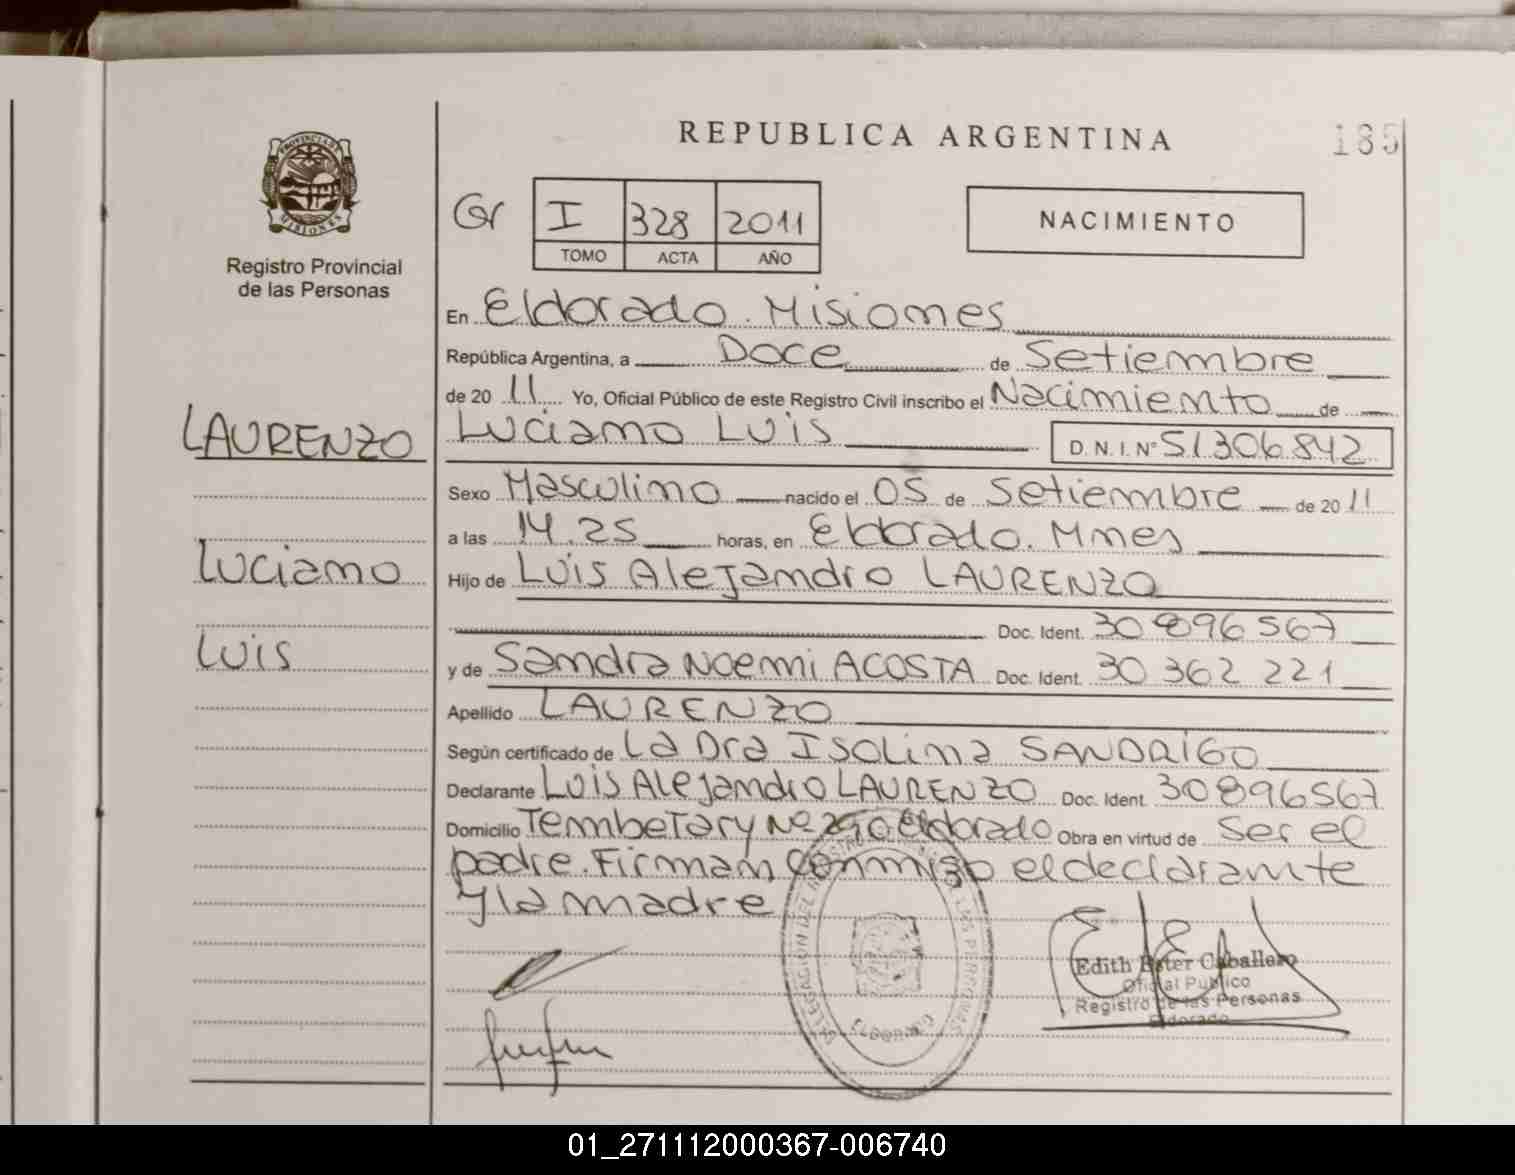 REPUBLICA ARGENTINA
185
PROVINCIA DE MISIONES
Registro Provincial
de las Personas
Gr I 328 2011
TOMO ACTA AÑO
NACIMIENTO
En Eldorado. Misiones
República Argentina, a Doce de Setiembre
de 20 11 Yo, Oficial Público de este Registro Civil inscribo el Nacimiento de
Luciano Luis D.N.I. Nº 51306842
LAURENZO
Sexo Masculino nacido el 05 de Setiembre de 20 11
a las 14.25 horas, en Eldorado. Mnes
Luciano
Hijo de Luis Alejandro LAURENZO
Doc. Ident. 30896567
Luis
y de Sandra Noemi ACOSTA Doc. Ident. 30 362 221
Apellido LAURENZO
Según certificado de La Dra Isolina SANDRIGO
Declarante Luis Alejandro LAURENZO Doc. Ident 30896567
Domicilio Tembetary Nº Eldorado Obra en virtud de ser el
padre. Firman conmigo el declarante
y la madre
DELEGACION DEL REGISTRO DE LAS PERSONAS
ELDORADO
Edith Ester Caballero
Oficial Público
Registro de las Personas
Eldorado
01_271112000367-006740